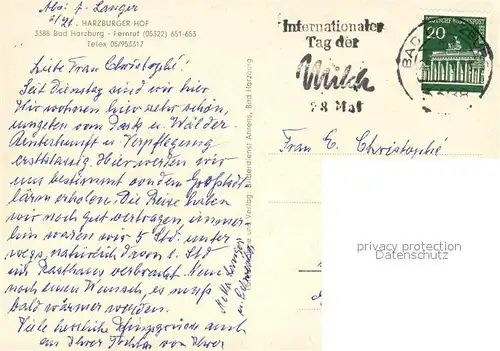 Abs: F. Langer
z/Zt. HARZBURGER HOF
3388 Bad Harzburg - Fernruf (05322) 651-653
Telex 05/953317
Liebe Frau Christophé!
Seit Dienstag sind wir hier
Wir wohnen hier sehr schön,
umgeben vom Park u. Wälder.
Unterkunft u. Verpflegung
erstklassig. Hier werden wir
uns bestimmt von dem Großstadt
lärm erholen. Die Reise haben
wir noch gut vertragen, immer
hin waren wir 5 Std. unter
wegs, natürlich davon 1 Std
im Rasthaus verbracht. Nun
noch einen Wunsch es muß
bald wärmer werden.
Viele herzliche Pfingstgrüße auch
an Ihrer Tochter von Ihrer
Langer
und Verlag Bilderdienst Ahrens, Bad Harzburg
Internationaler
Tag der
Milch
28 Mai
DEUTSCHE BUNDESPOST
20
BAD
Frau E. Christophé
privacy protection
Datenschutz